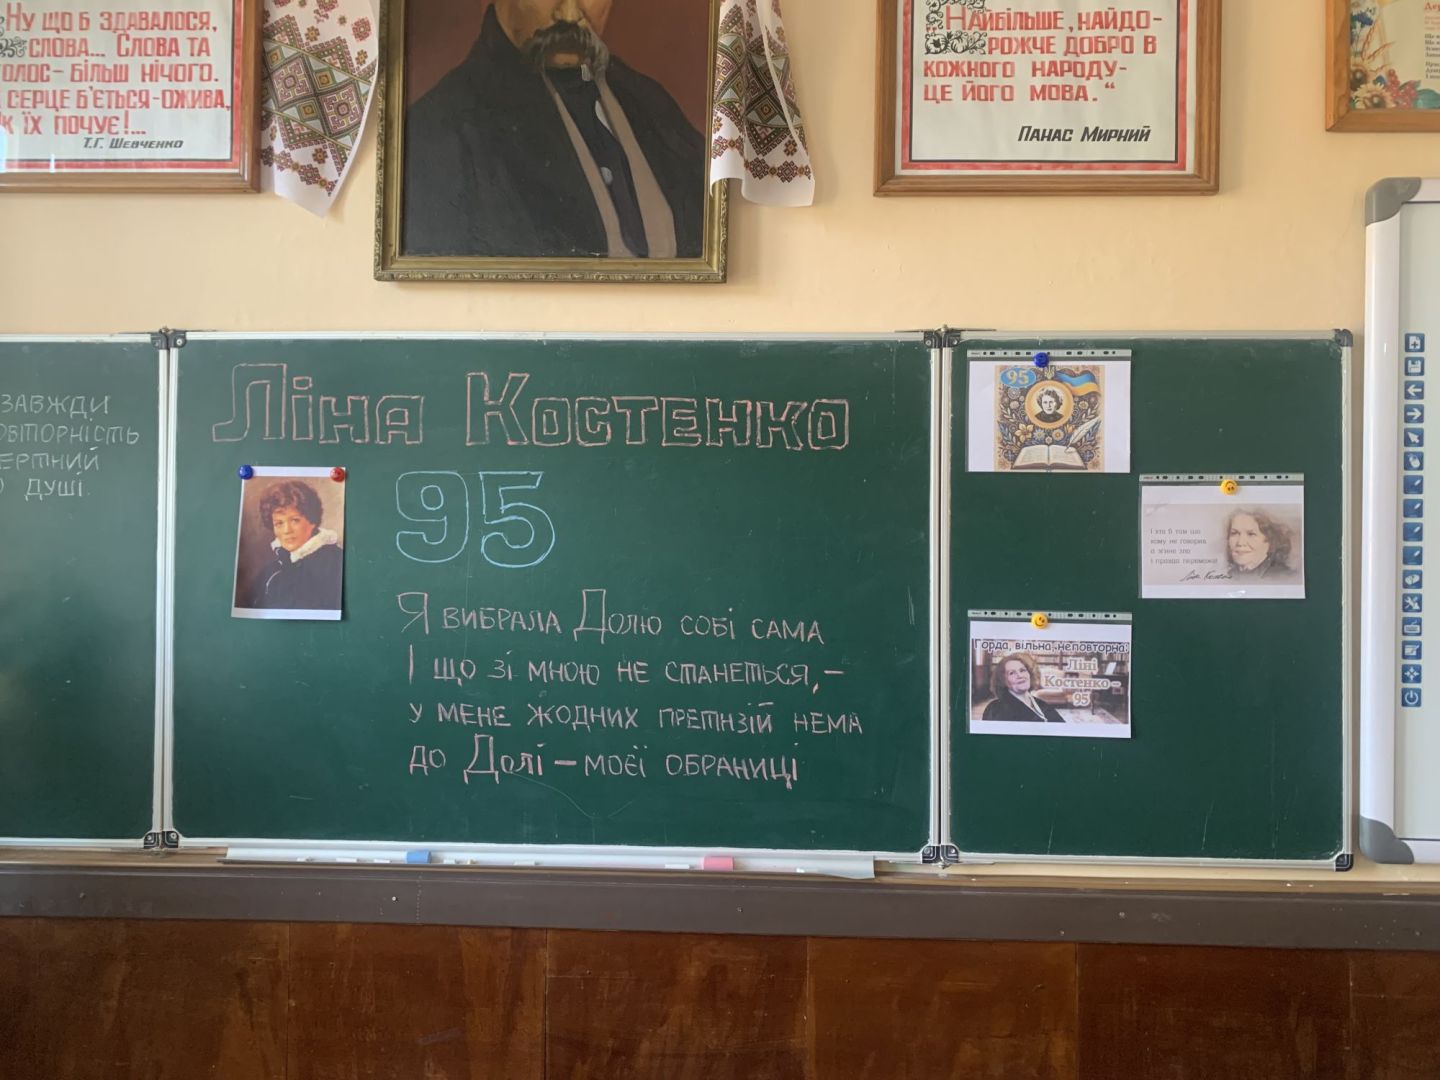 Ну що б здавалося,
слова... Слова та
голос - більш нічого.
серце б'ється - ожива,
Як їх почує!...
Т.Г. Шевченко
„Найбільше, найдо-
рожче добро в
кожного народу-
це його мова."
Панас Мирний
завжди
душі.
Ліна Костенко
95
Я вибрала Долю собі сама
І що зі мною не станеться, –
у мене жодних претнзій нема
до Долі – моєї обраниці
95
І хто б там що
кому не говорив
а згине зло
і правда переможе!
Ліна Костенко
Горда, вільна, неповторна:
Ліні
Костенко –
95